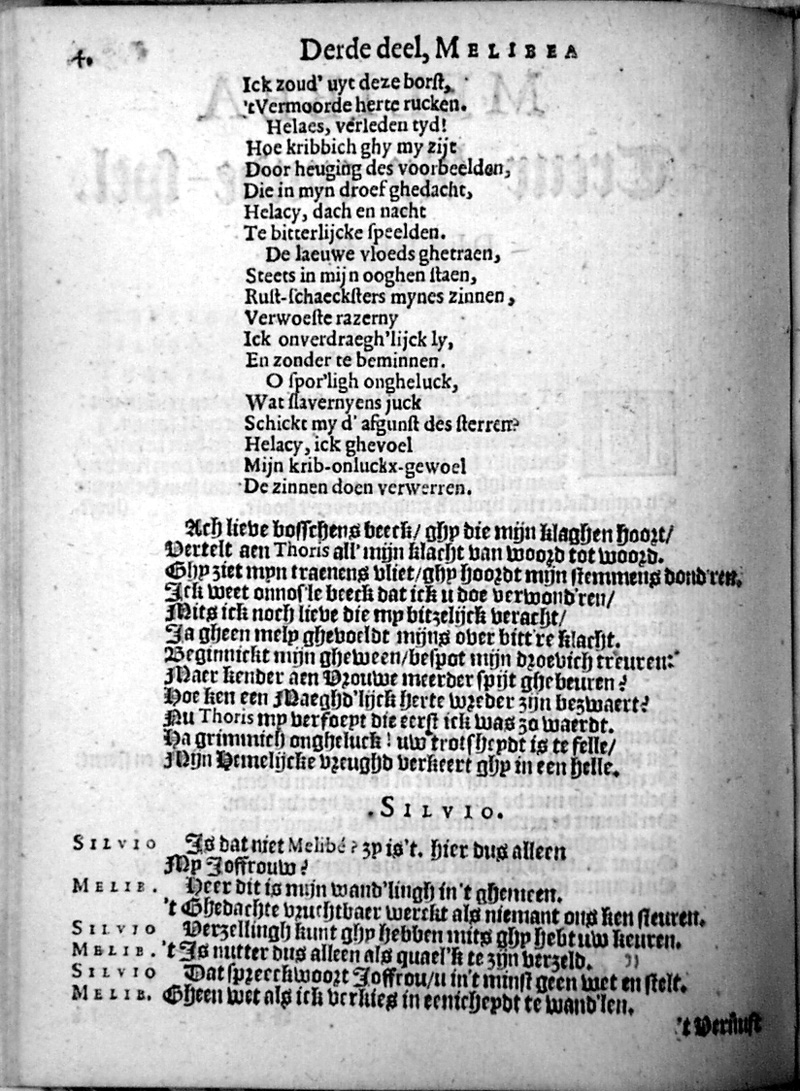 4.
Derde deel, MELIBEA
Ick zoud' uyt deze borſt,
'tVermoorde herte rucken.
Helaes, verleden tyd!
Hoe kribbich ghy my zijt
Door heuging des voorbeelden,
Die in myn droef ghedacht,
Helacy, dach en nacht
Te bitterlijcke ſpeelden.
De laeuwe vloeds ghetraen,
Steets in mijn ooghen ſtaen,
Ruſt-ſchaeckſters mynes zinnen,
Verwoeſte razerny
Ick onverdraegh'lijck ly,
En zonder te beminnen.
O ſpor'ligh ongheluck,
Wat ſlavernyens juck
Schickt my d' afgunſt des ſterren?
Helacy, ick ghevoel
Mijn krib-onluckx-gewoel
De zinnen doen verwerren.
Ach lieve boſſchens beeck/ ghy die mijn klaghen hoort/
Vertelt aen Thoris all' mijn klacht van woord tot woord.
Ghy ziet myn traenens vliet/ ghy hoordt mijn ſtemmens dond'ren.
Ick weet onnoſ'le beeck dat ick u doe verwond'ren/
Mits ick noch lieve die my bitzelijck veracht/
Ja gheen mely ghevoeldt mijns over bitt're klacht.
Beginnickt mijn gheween/ beſpot mijn droevich treuren:
Maer kender aen Vrouwe meerder ſpijt ghebeuren?
Hoe ken een Maeghd'lijck herte wreder zijn bezwaert?
Nu Thoris my verſoeyt die eerſt ick was zo waerdt.
Ha grimmich ongheluck! uw trotſheydt is te felle/
Mijn Hemelijcke vreughd verkeert ghy in een helle.
SILVIO.
SILVIO Is dat niet Melibé? zy is't. hier dus alleen
My Joffrouw?
MELIB. Heer dit is mijn wand'lingh in't ghemeen.
't Ghedachte vruchtbaer werckt als niemant ons ken ſteuren.
SILVIO Verzellingh kunt ghy hebben mits ghy hebt uw keuren.
MELIB. 't Is nutter dus alleen als quael'k te zijn verzeld.
SILVIO Dat ſpreeckwoort Joffrou/ u in't minſt geen wet en ſtelt.
MELIB. Gheen wet als ick verkies in eenicheydt te wand'len.
't Vernuft